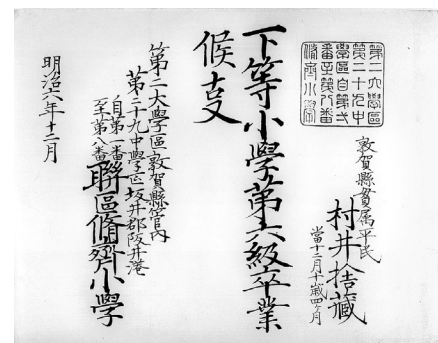 第二大學區
第二十九中
學區自第弐
番至第八番
脩齊小學
敦賀縣貫属平民
村井捨藏
當十二月十歳四ヶ月
下等小學第六級卒業
候支
第二大學區敦賀縣管内
第二十九中學區坂井郡阪井港
自第二番
至第八番
聯區脩齊小學
明治六年十二月